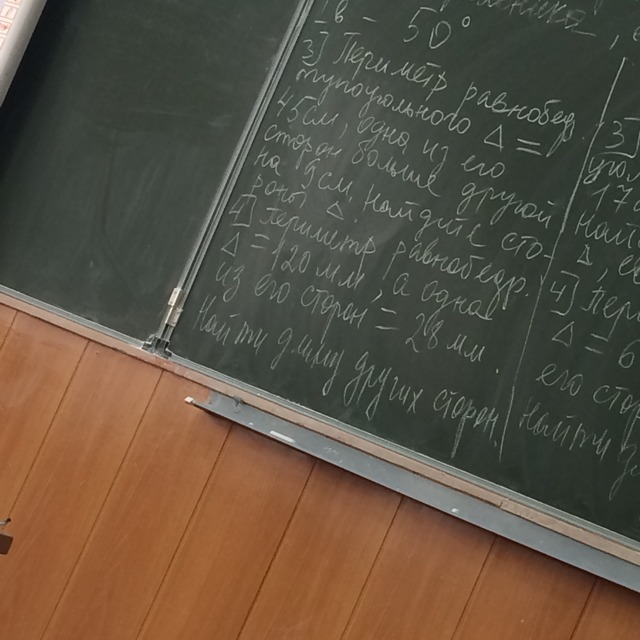 50°
3] Периметр равнобед.
тупоугольного Δ =
45см, одна из его
сторон больше другой
на 9см. Найдите сто-
роны Δ.
4] Периметр равнобедр.
Δ = 120 мм, а одна
из его сторон = 28 мм.
Найти длину других сторон.
3]
17
Найт
Δ, е
4] Пери
Δ = 6
его стор
Найти д